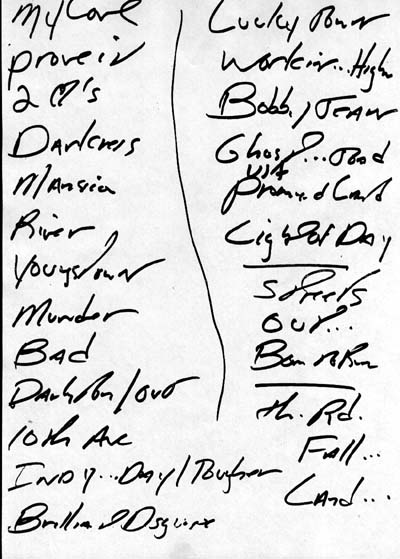 My Love
prove it
2 M's
Darkness
Mansion
River
Youngstown
Murder
Bad
Darlington/Out
10th Ave
Indy...Day/Tougher
Brilliant Disguise
Lucky Town
Workin...High
Bobby Jean
Ghost...Toad
Promised Land
Light of Day
Streets
Out...
Born to Run
th. Rd.
Fall...
Land...